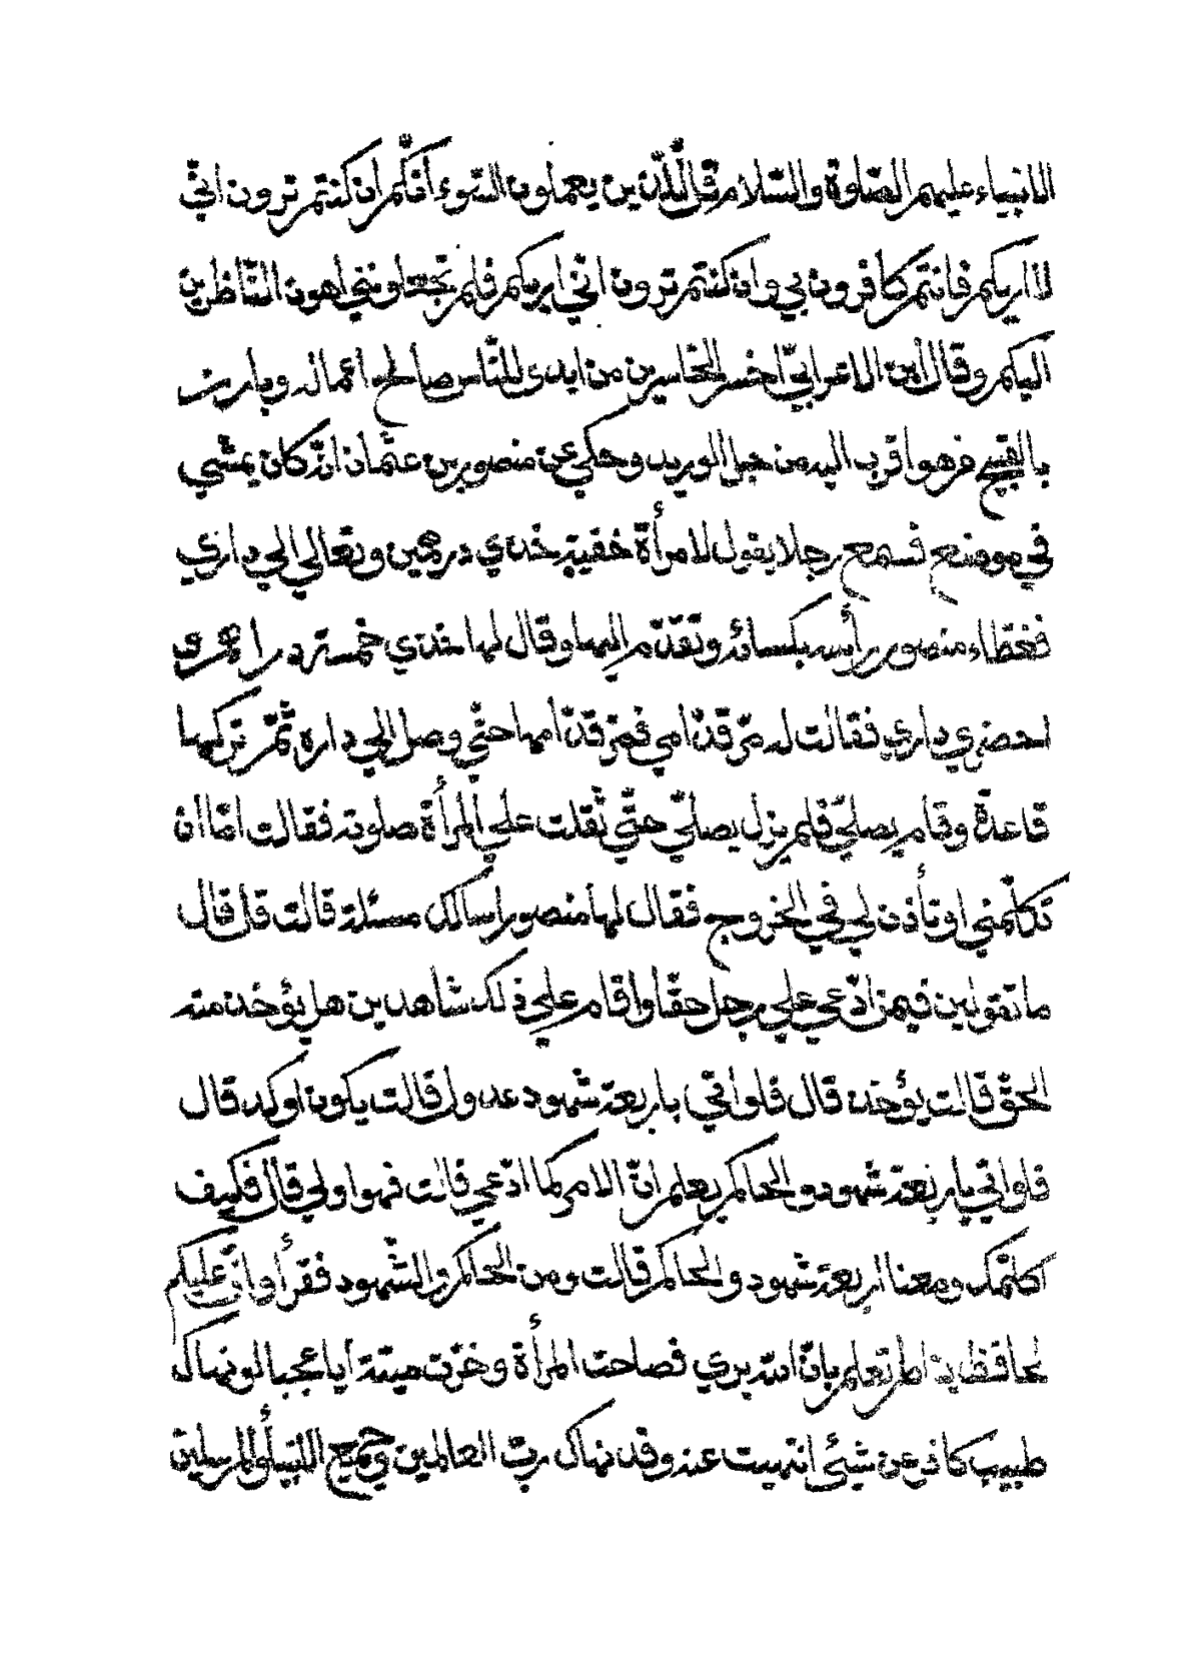 الانبياء عليهم الصلوة والسلام قل للذين يعملون السوء أنكم ان كنتم ترون اني
لا اريكم فانتم كافرون بي وان كنتم ترون اني اريكم فلم تجعلونني اهون الناظرين
اليكم وقال ابن الاعرابي اخسر الخاسرين من ابدى للناس صالح اعماله وبارز
بالقبيح من هو اقرب اليه من حبل الوريد وحكي عن منصور بن عثمان انه كان يمشي
في موضع فسمع رجلا يقول لامرأة خفية خذي درهمين وتعالي الي داري
فغطاء منصور رأسه بكسائه وتقدم اليها وقال لها خذي خمسة دراهم و
احضري داري فقالت له مر قدامي فمر قدامها حتي وصل الي داره ثم تركها
قاعدة وقام يصلي فلم يزل يصلي حتي ثقلت علي المرأة صلوته فقالت اما ان
تكلمني او تأذن لي في الخروج فقال لها منصور اسالك مسئلة قالت قل قال
ما تقولين فيمن ادعي علي رجل حقا واقام علي ذلك شاهدين هل يؤخذ منه
الحق قالت يؤخذ قال فلو اتي باربعة شهود عدول قالت يكون اوكد قال
فلو اتي باربعة شهود والحاكم يعلم ان الامر كما ادعي قالت فهو اولي قال فكيف
اكلمك ومعنا اربعة شهود والحاكم قالت ومن الحاكم والشهود فقرأ وان عليكم
لحافظين الم تعلم بان الله يري فصاحت المرأة وخرت ميتة أيا عجبا لو نهاك
طبيب كافر عن شيئ انتهيت عنه وقد نهاك رب العالمين وجميع الانبياء والمرسلين